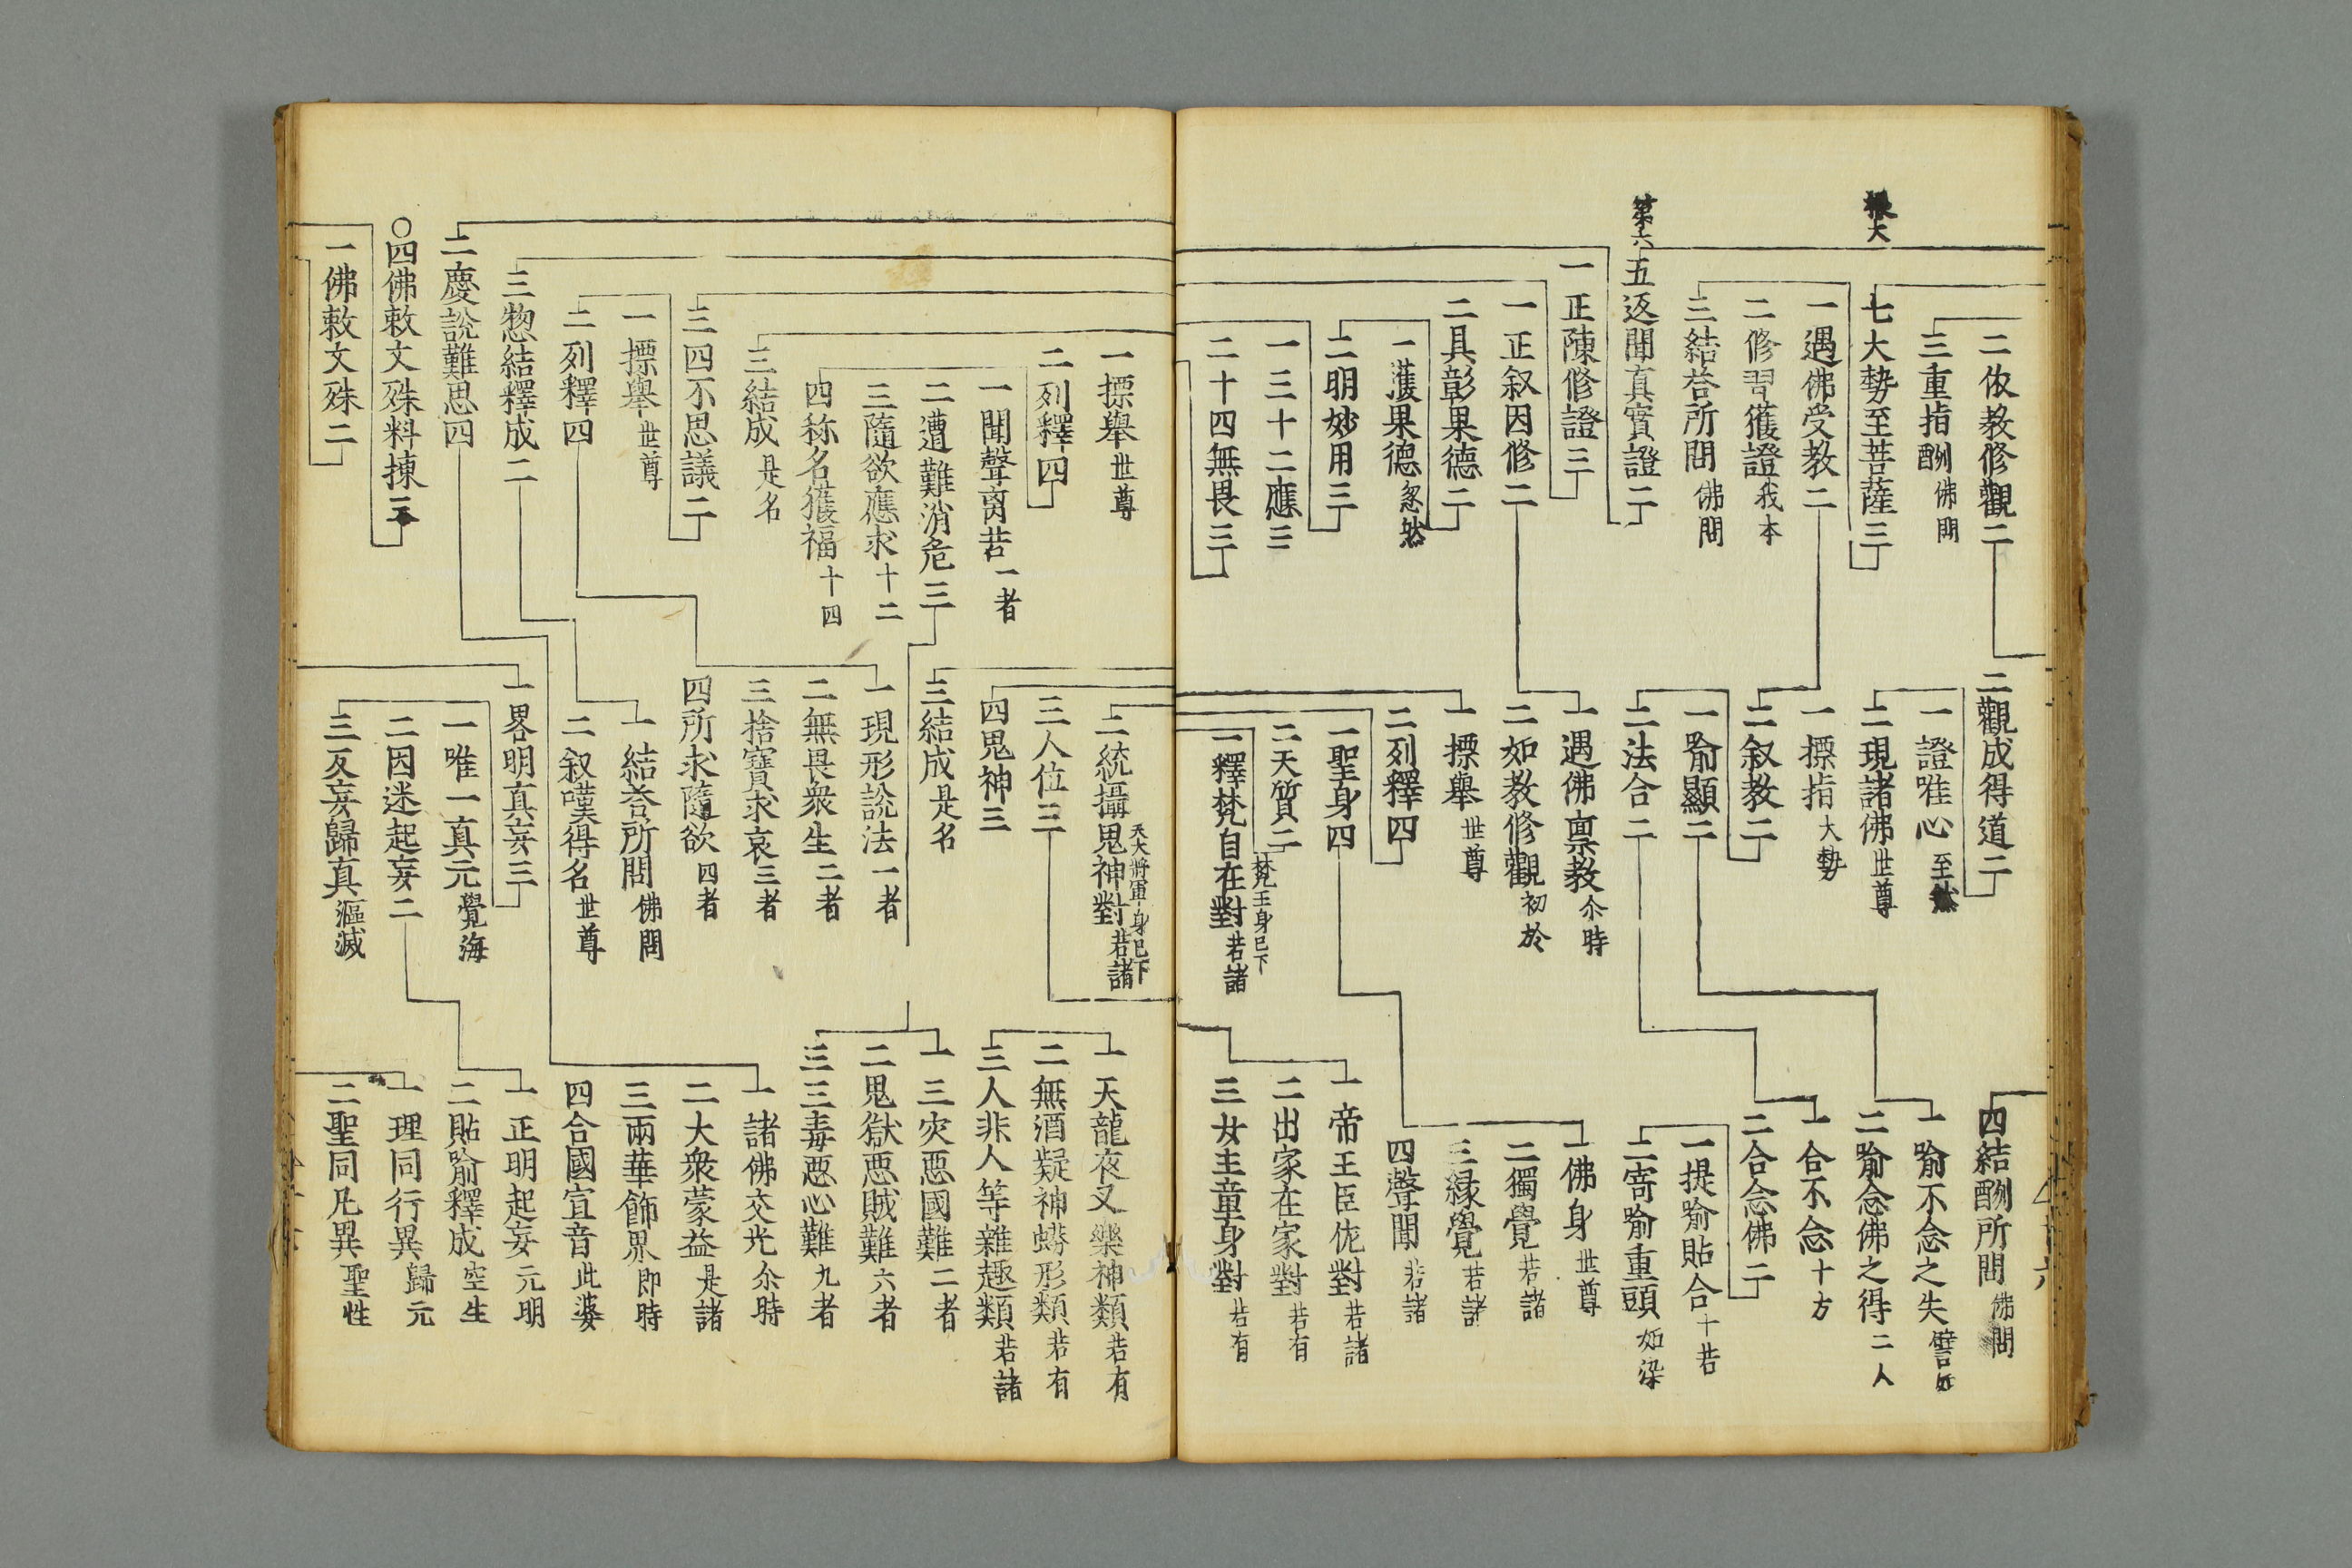 四結酬所問 佛問
二依教修觀二
二觀成得道二
三重指酬 佛問
一證唯心
一喻不念之失
根大
七大勢至菩薩三
二現諸佛 世尊
二喻念佛之得 二人
一遇佛受教二
一摽指 大勢
一合不念 十方
二修習獲證 我本
二叙教二
二合念佛二
三結荅所問 佛問
一喻顯二
一提喻貼合 十若
第六
五返聞真實證二
二法合二
二寄喻重頭 如染
一正陳修證三
一遇佛禀教 尒時
一佛身 世尊
一正叙因修二
二如教修觀 初於
二獨覺 若諸
二具彰果德二
一摽舉 世尊
三緣覺 若諸
一獲果德 忽然
二列釋四
四聲聞 若諸
二明妙用三
一聖身四
一帝王臣佐對 若諸
一三十二應三
二天質二
梵王身已下
二出家在家對 若有
二十四無畏三
一釋梵自在對 若諸
三女主童身對 若有
一摽舉 世尊
天大將軍身已下
二統攝鬼神對 若諸
一天龍夜叉樂神類 若有
二列釋四
三人位三
二無酒疑神蟒形類 若有
一聞聲离苦 一者
四鬼神三
三人非人等雜趣類 若諸
二遭難消危三
三結成 是名
一三灾惡國難 二者
三隨欲應求 十二
一現形說法 一者
二鬼獄惡賊難 六者
四称名獲福 十四
二無畏衆生 二者
三三毒惡心難 九者
三結成 是名
三捨寶求哀 三者
一諸佛交光 尒時
三四不思議二
四所求隨欲 四者
二大衆蒙益 是諸
一摽舉 世尊
一結荅所問 佛問
三兩華飾界 即時
二列釋四
二叙嘆得名 世尊
四合國宣音 此婆
三惣結釋成二
一畧明真妄三
一正明起妄 元明
二慶說難思四
一唯一真元 覺海
二貼喻釋成 空生
○四佛敕文殊料揀二
二因迷起妄二
一理同行異 歸元
一佛敕文殊二
三反妄歸真 漚滅
二聖同凡異 聖性